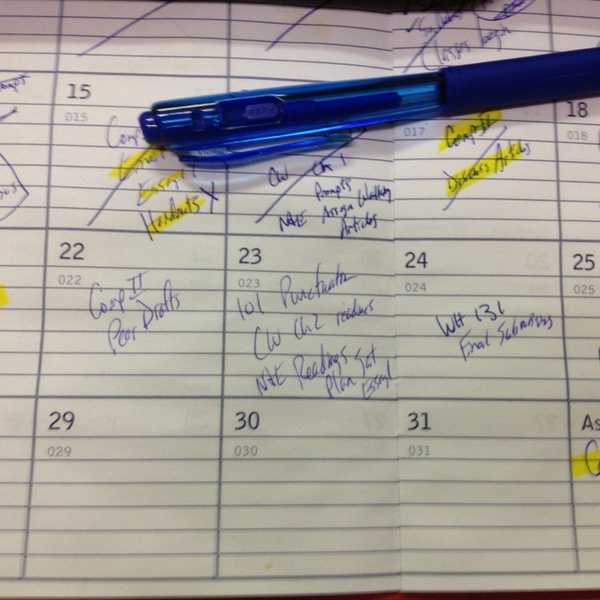 Classes begin
15
015
Comp
Essay 1
Handouts X
CW Ch 1
Prompts
NAE Assign Walking
Articles
017
Comp II
Discuss Articles
18
018
22
022
Comp II
Peer Drafts
23
023
101 Punctuation
CW Ch2 readings
NAE Readings
Plan 1st
Essay
24
024
WH 131
Final Submissions
25
025
29
029
30
030
31
031
As